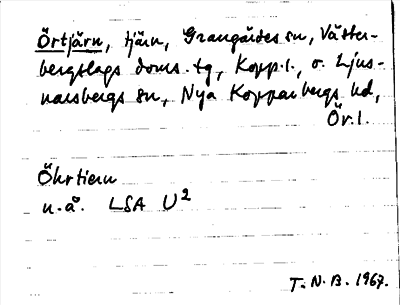 Örtjärn, tjärn, Grangärdes sn, Väster-
bergslags doms. tg, Kopp. l., o. Ljus-
narsbergs sn, Nya Kopparbergs hd,
Ör. l.
Öhrtiern
u.å. LSA U²
T.N.B. 1967.